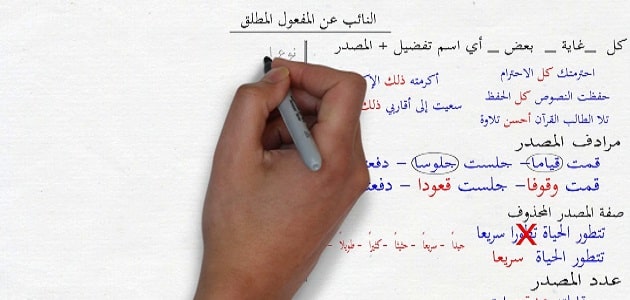 النائب عن المفعول المطلق
كل _ غاية _ بعض _ أي اسم تفضيل + المصدر
نوعا
احترمتك كل الاحترام
أكرمته ذلك
حفظت النصوص كل الحفظ
سعيت إلى أقاربي ذلك
تلا الطالب القرآن أحسن تلاوة
مرادف المصدر
قمت قياما - جلست جلوسا -
قمت وقوفا - جلست قعودا -
صفة المصدر المحذوف
تتطور الحياة تطورا سريعا
جيداً - سريعاً - حثيثاً - كثيراً - طويلاً -
تتطور الحياة سريعا
عدد المصدر